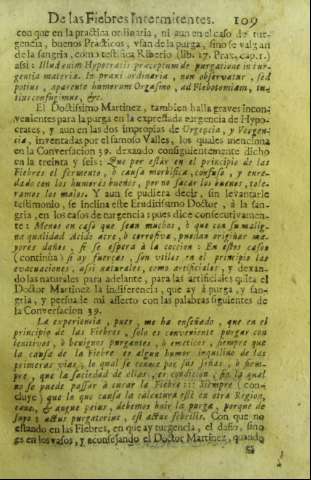 De las Fiebres Intermitentes. 109
con que en la practica ordinaria, ni aun en el caso de tur-
gencia, buenos Practicos, vsan de la purga, sino se valgan
de la sangria, como testifica Riberio (lib. 17. Prax. cap. 1.)
assi: Illud enim Hypocratis præceptum de purgatione in tur-
gentia materia. In praxi ordinaria, non observatur, sed
potius, aparente humorum Orgasmo, ad Flebotomiam, tu-
tius confugimus, &c.
El Doctissimo Martinez, tambien halla graves incon-
venientes para la purga en la expressada turgencia de Hypo-
crates, y aun en las dos impropias de Urgencia, y Vergen-
cia, inventadas por el famoso Valles, los quales menciona
en la Conversacion 39. dexando consiguientemente dicho
en la treinta y seis: Que por estàr en el principio de las
Fiebres el fermento, ò causa morbifica, confusa, y enre-
dado con los humores buenos, por no sacar los buenos, tole-
ramos los malos. Y aun se pudiera decir, sin levantarle
testimonio, se inclina este Eruditissimo Doctor, à la san-
gria, en los casos de turgencia: pues dice consecutivamen-
te: Menos en caso que sean muchos, ò que con su malig-
na qualidad Acido acre, ò corrosiva, puedan originar ma-
yores daños, si se espera à la coccion: En estos casos
(continùa) si ay fuerzas, son vtiles en el principio las
evacuaciones, assi naturales, como artificiales, y dexan-
do las naturales para adelante, para las artificiales quita el
Doctor Martinez la indiferencia, que ay à purga, y san-
gria, y persuade mi assunto con las palabras siguientes de
la Conversacion 39.
La experiencia, pues, me ha enseñado, que en el
principio de las Fiebres, solo es conveniente purgar con
lenitivos, ò benignos purgantes, ò emeticos, siempre que
la causa de la Fiebre es algun humor inquilino de las
primeras vias, lo qual se conoce por sus señas, ò siem-
pre, que la saciedad de ellas, es condicion, sin la qual
no se puede passar à curar la Fiebre::: Siempre (con-
cluye) que lo que causa la calentura està en otra Region,
vaso, & augue peius, debemos huir la purga, porque de
suyo: actus purgatorius, est actus febrilis. Con que no
estando en las Fiebres, en que ay turgencia, el daño, sino
es en los vasos, y aconsejando el Doctor Martinez, quando